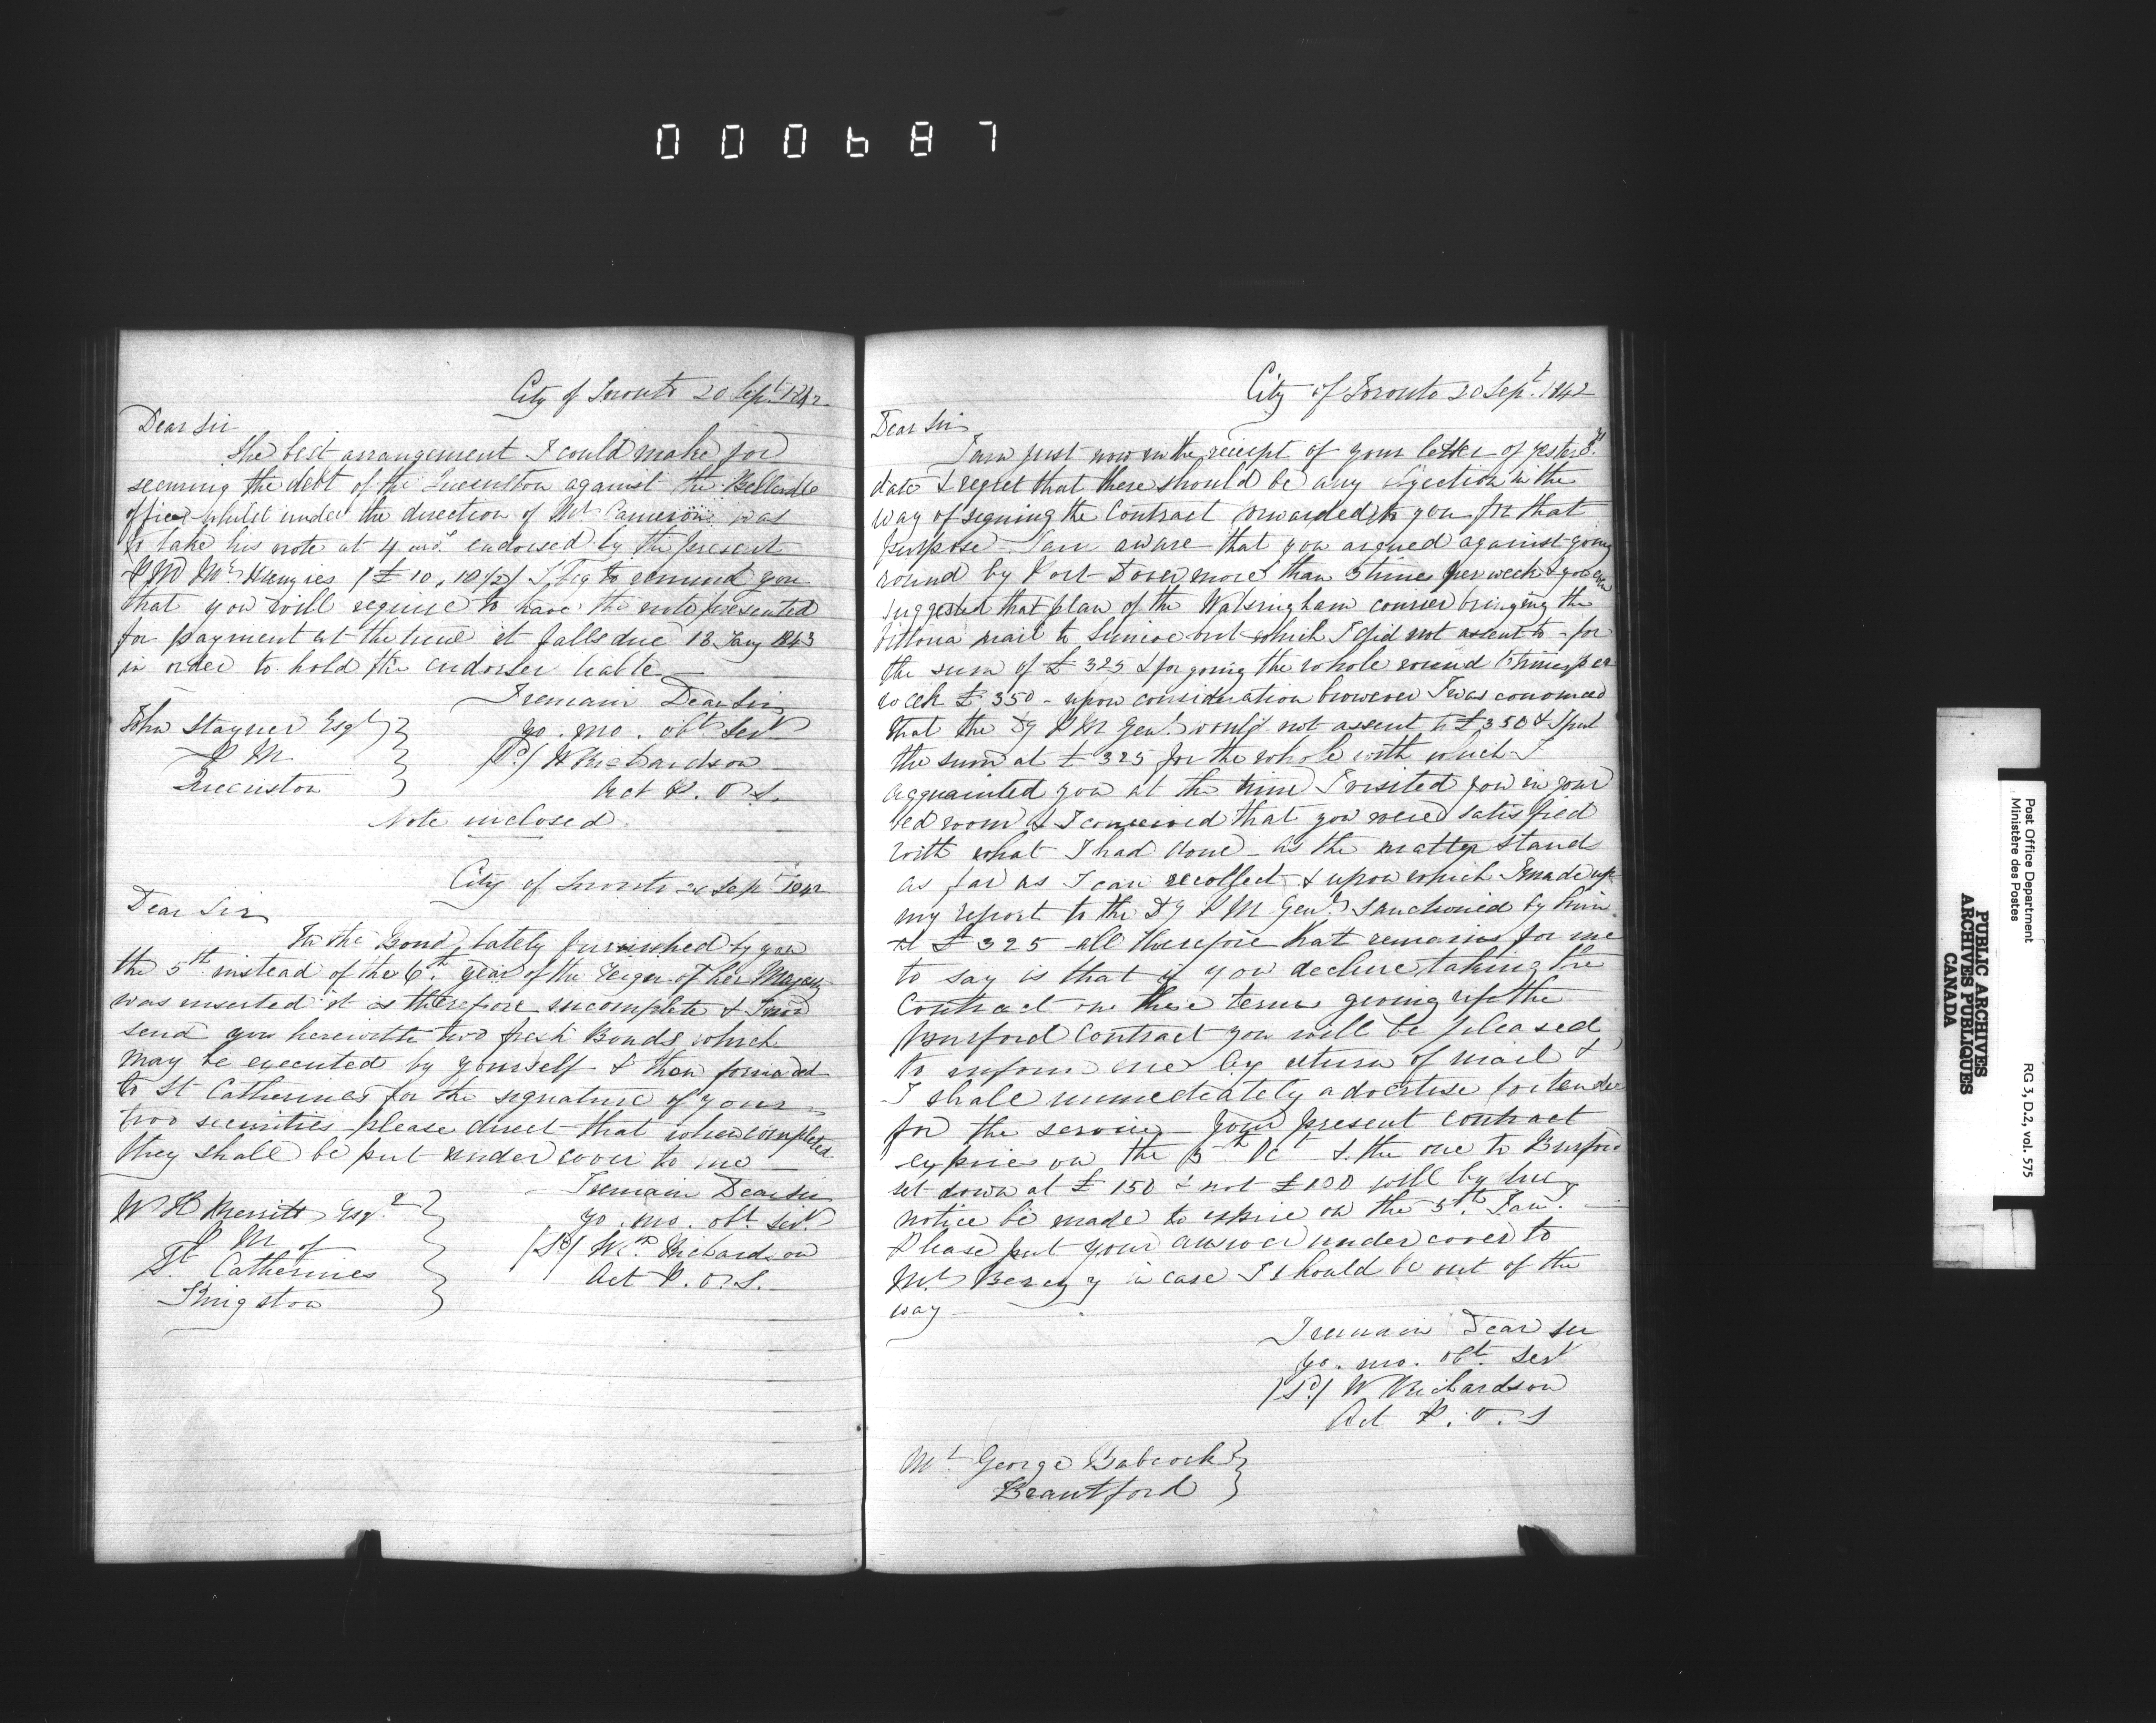 000687
City of Toronto 20 Sept. 1842
Dear Sir
The best arrangement I could make for
securing the debt of the Queenston against the Belleville
office whilst under the direction of Mr Cameron was
to take his note at 4 mos. endorsed by the present
P M Mr Menzies (£10,10/2) I beg to remind you
that you will require to have the note presented
for payment at the time it falls due 18 Jany 1843
in order to hold the endorser liable
I remain Dear Sir
yo. mo. obt. Servt
/Sd/ W Richardson
Act P. O. S.
John Stayner Esqr
P M
Queenston
Note inclosed
City of Toronto 20 Sept 1842
Dear Sir
In the Bond lately furnished by you
the 5th instead of the 6th year of the Reign of her Majesty
was inserted it is therefore incomplete & I now
send you herewith two fresh Bonds which
may be executed by yourself & then forwarded
to St Catherines for the signature of your
two securities please direct that when completed
they shall be put under cover to me
I remain Dear Sir
yo. mo. obt. Servt
/Sd/ Wm Richardson
Act P. O. S.
W H Merritt Esqr
P M of
St. Catherines
Kingston
City of Toronto 20 Sept. 1842
Dear Sir
I am just now in the receipt of your letter of yesterdys.
date & regret that there should be any Ojection in the
way of signing the Contract forwarded to you for that
purpose I am aware that you argued against going
round by Port Dover more than 3 times per week & you even
suggested that plan of the Walsingham courier bringing the
Vittoria mail to Simcoe but which I did not assent to - for
the sum of £325 & for going the whole round 6 times per
week £350 - upon consideration however I was convinced
that the Dy P M Genl. would not assent to £350 & I put
the sum at £325 for the whole with which I
acquainted you at the time I visited you in your
bed room & I conceived that you were satisfied
with what I had done - as the matter stands
as far as I can recollect & upon which I made up
my report to the Dy P M Genl. sanctioned by him
at £325 all therefore that remains for me
to say is that if you decline taking the
Contract on these terms giving up the
Burford Contract you will be pleased
to inform me by return of mail &
I shall immediately advertise for tenders
for the service your present contract
expires on the 5th Oct & the one to Burford
set down at £150 & not £100 will by my
notice be made to expire on the 5th. Jany.
Please put your answer under cover to
Mr Berczy in case I should be out of the
way
I remain Dear Sir
yo. mo. obt. Servt
/Sd/ W Richardson
Act P. O. S
Mr. George Babcock
Brantford
Post Office Department
Ministère des Postes
RG 3, D.2, vol. 575
PUBLIC ARCHIVES
ARCHIVES PUBLIQUES
CANADA